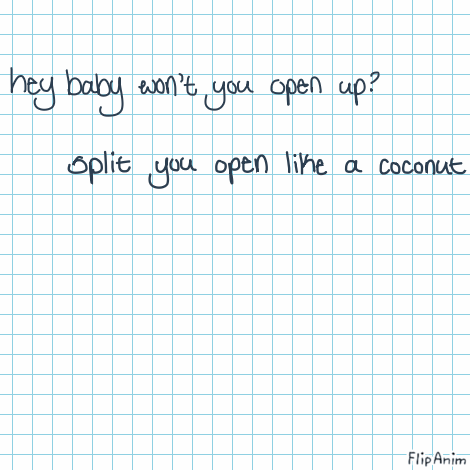 hey baby won't you open up?
split you open like a coconut
FlipAnim